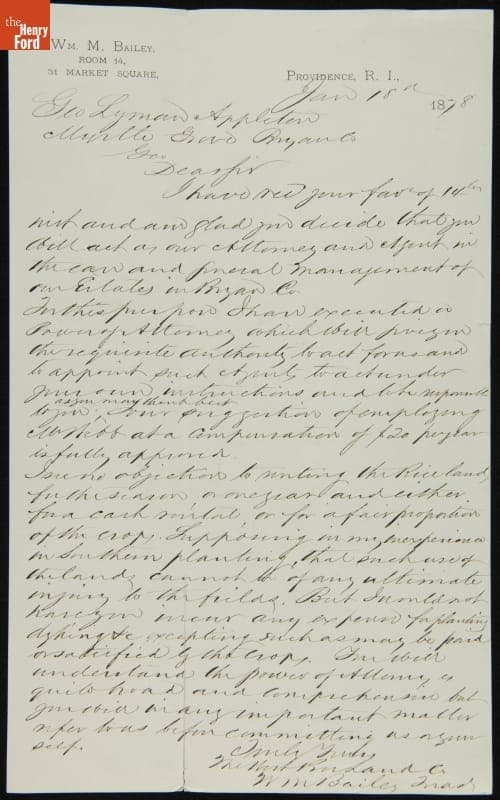 the
Henry
Ford
WM. M. BAILEY,
ROOM 14,
31 MARKET SQUARE,
PROVIDENCE, R. I.,
Jan 18 1878
Geo Lyman Appleton
Myrtle Grove Bryan Co
Geo
Dear Sir
I have recd your favr of 14th
inst and am glad you decide that you
will act as our Attorney and Agent in
the care and general management of
our Estates in Bryan Co.
For this purpose I have executed a
Power of Attorney which will give you
the requisite authority to act for us and
to appoint such Agents to act under
your own instructions and to be responsible
as you may think best
to you; your suggestion of employing
Mr at a compensation of $20 per year
is fully approved.
I see no objection to renting the Rice land
for the season or one year and either
for a cash rental, or for a fair proportion
of the crop. Supposing in my inexperience
in Southern planting, that such use of
the lands cannot be of any ultimate
injury to the fields. But I would not
have you incur any expense for planting
dyking &c excepting such as may be paid
or satisfied by the crops. You will
understand the power of Attorney is
quite broad and comprehensive but
you will in any important matter
refer to us before committing us or your
self.
Truly Yours
The Land Co
W M Bailey Treas